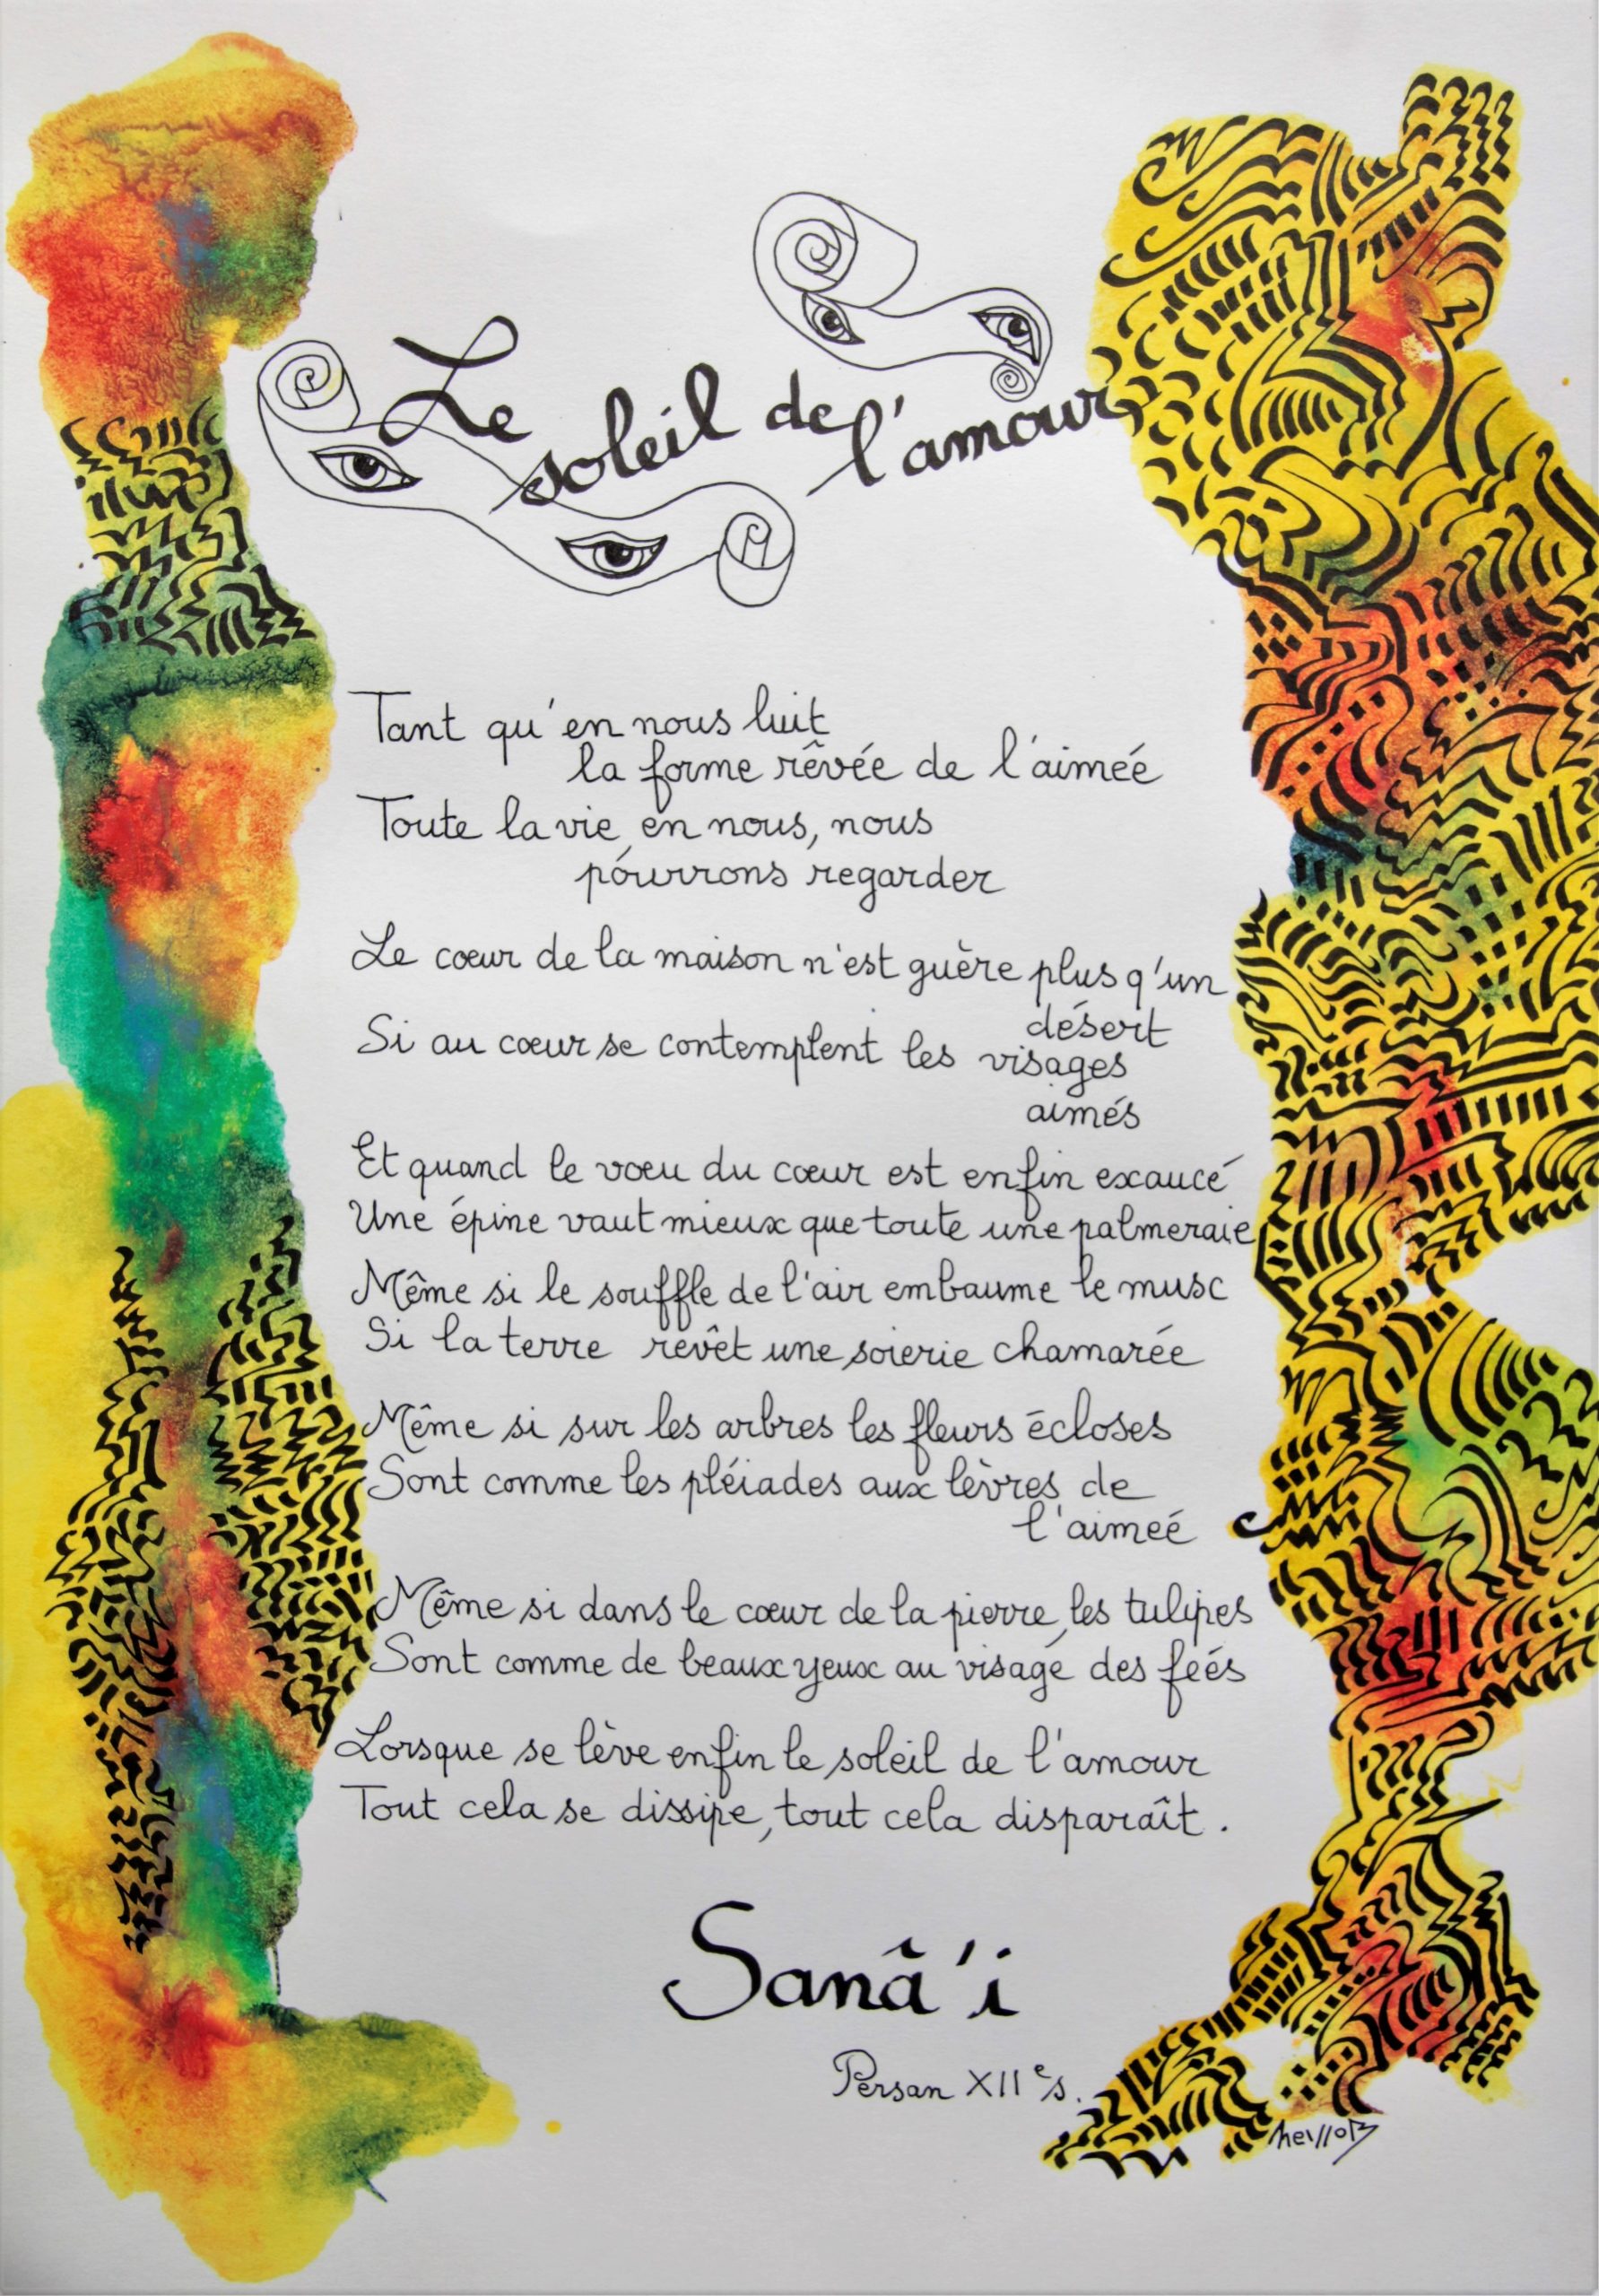 Le
soleil de
l'amour
Tant qu'en nous luit
la forme rêvée de l'aimée
Toute la vie en nous, nous
pourrons regarder
Le cœur de la maison n'est guère plus q'un
désert
Si au cœur se contemplent les visages
aimés
Et quand le voeu du cœur est enfin exaucé
Une épine vaut mieux que toute une palmeraie
Même si le souffle de l'air embaume le musc
Si la terre revêt une soierie chamarée
Même si sur les arbres les fleurs écloses
Sont comme les pléiades aux lèvres de
l'aimeé
Même si dans le cœur de la pierre, les tulipes
Sont comme de beaux yeux au visage des feés
Lorsque se lève enfin le soleil de l'amour
Tout cela se dissipe, tout cela disparaît.
Sanâ'i
Persan XIIe s.